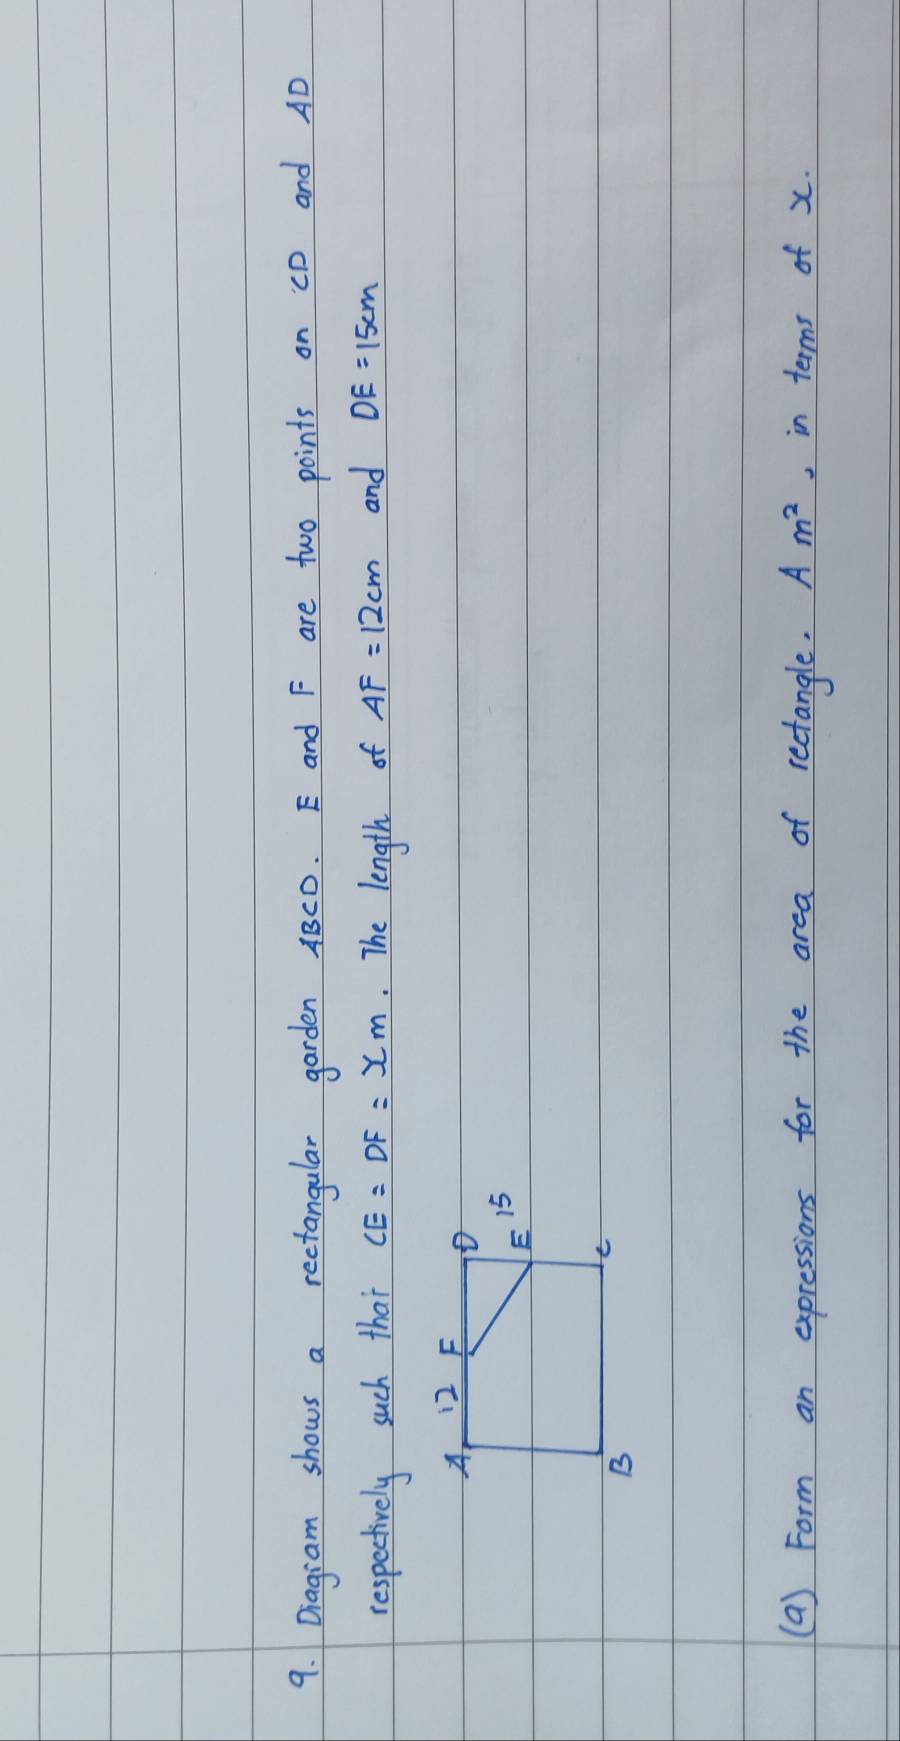 9. Diagram shows a rectangular garden ABCD. E and F are two points on CD and AD
respectively such that CE = DF = x m. The length of AF = 12cm and DE = 15cm
A 12 F D
E 15
B C
(a) Form an expressions for the area of rectangle. A m², in terms of x.